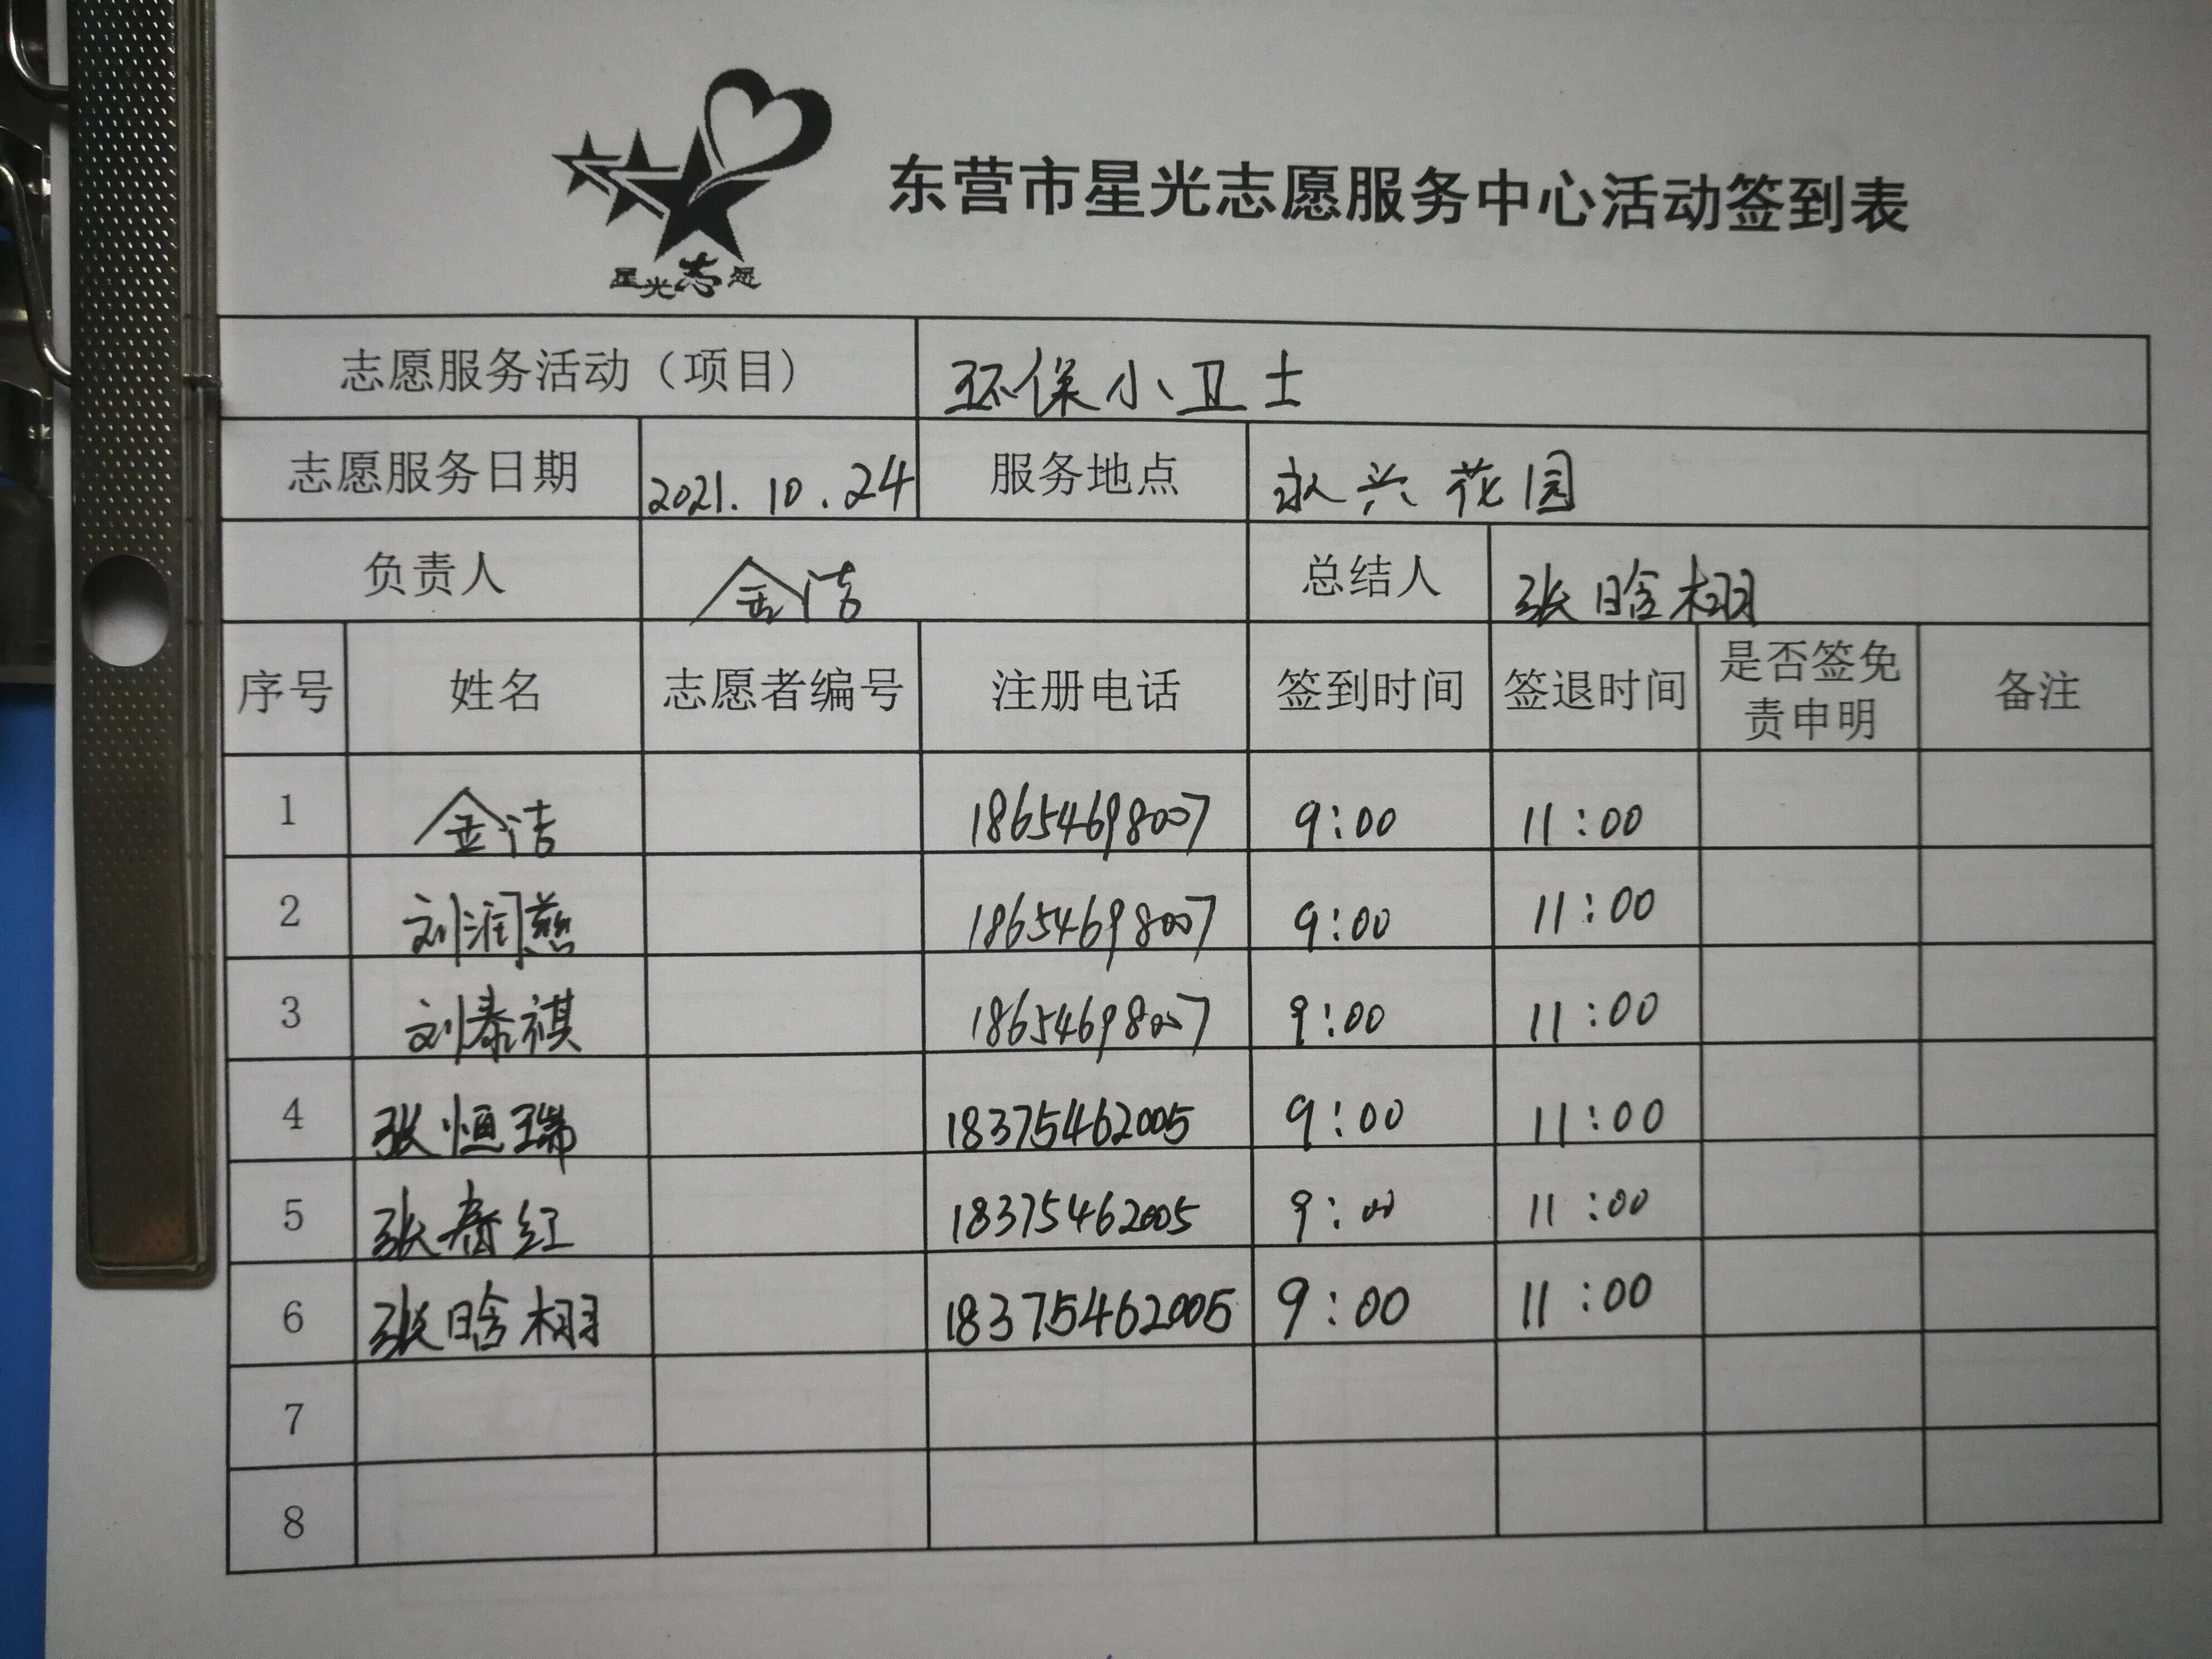 星光志愿
东营市星光志愿服务中心活动签到表
志愿服务活动（项目） 环保小卫士
志愿服务日期 2021.10.24 服务地点 永兴花园
负责人 金洁 总结人 张晗栩
序号 姓名 志愿者编号 注册电话 签到时间 签退时间 是否签免责申明 备注
1 金洁 18654698007 9:00 11:00
2 刘润慈 18654698007 9:00 11:00
3 刘泰祺 18654698007 9:00 11:00
4 张恒瑞 18375462005 9:00 11:00
5 张春红 18375462005 9:00 11:00
6 张晗栩 18375462005 9:00 11:00
7
8